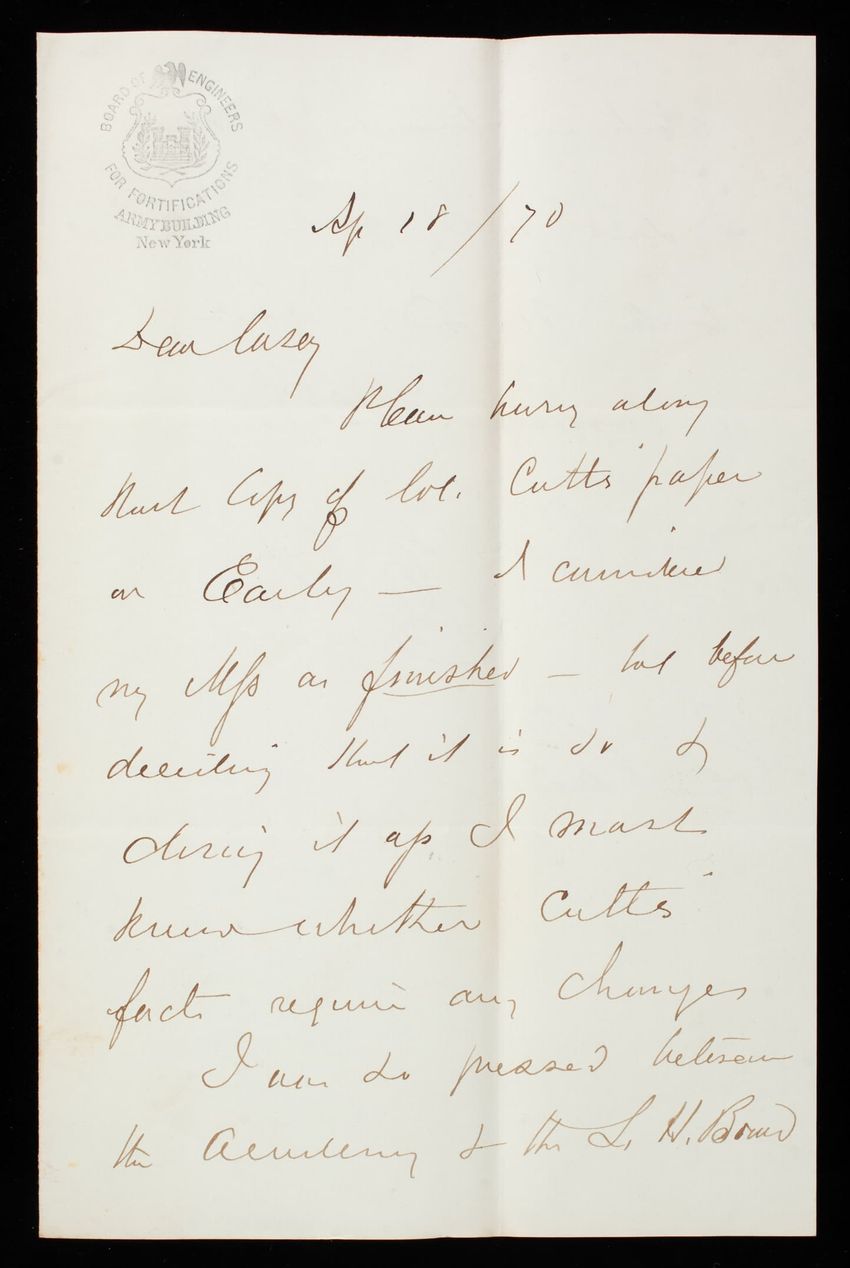 BOARD OF ENGINEERS
FOR FORTIFICATIONS
ARMY BUILDING
New York
Ap 18/70
Dear Casey
Please hurry along
that Copy of Col. Cutts' paper
on Early — I consider
my Mss as finished — but before
deciding that it is so &
closing it up I must
know whether Cutts'
facts require any changes
I am so pressed between
the Academy & the L. H. Board